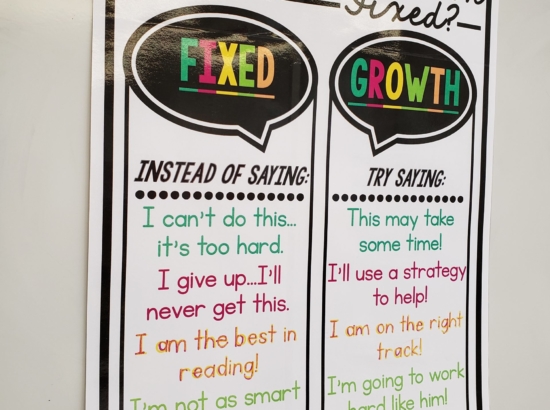 Fixed?
FIXED
INSTEAD OF SAYING:
I can't do this...
it's too hard.
I give up...I'll
never get this.
I am the best in
reading!
I'm not as smart
GROWTH
TRY SAYING:
This may take
some time!
I'll use a strategy
to help!
I am on the right
track!
I'm going to work
hard like him!